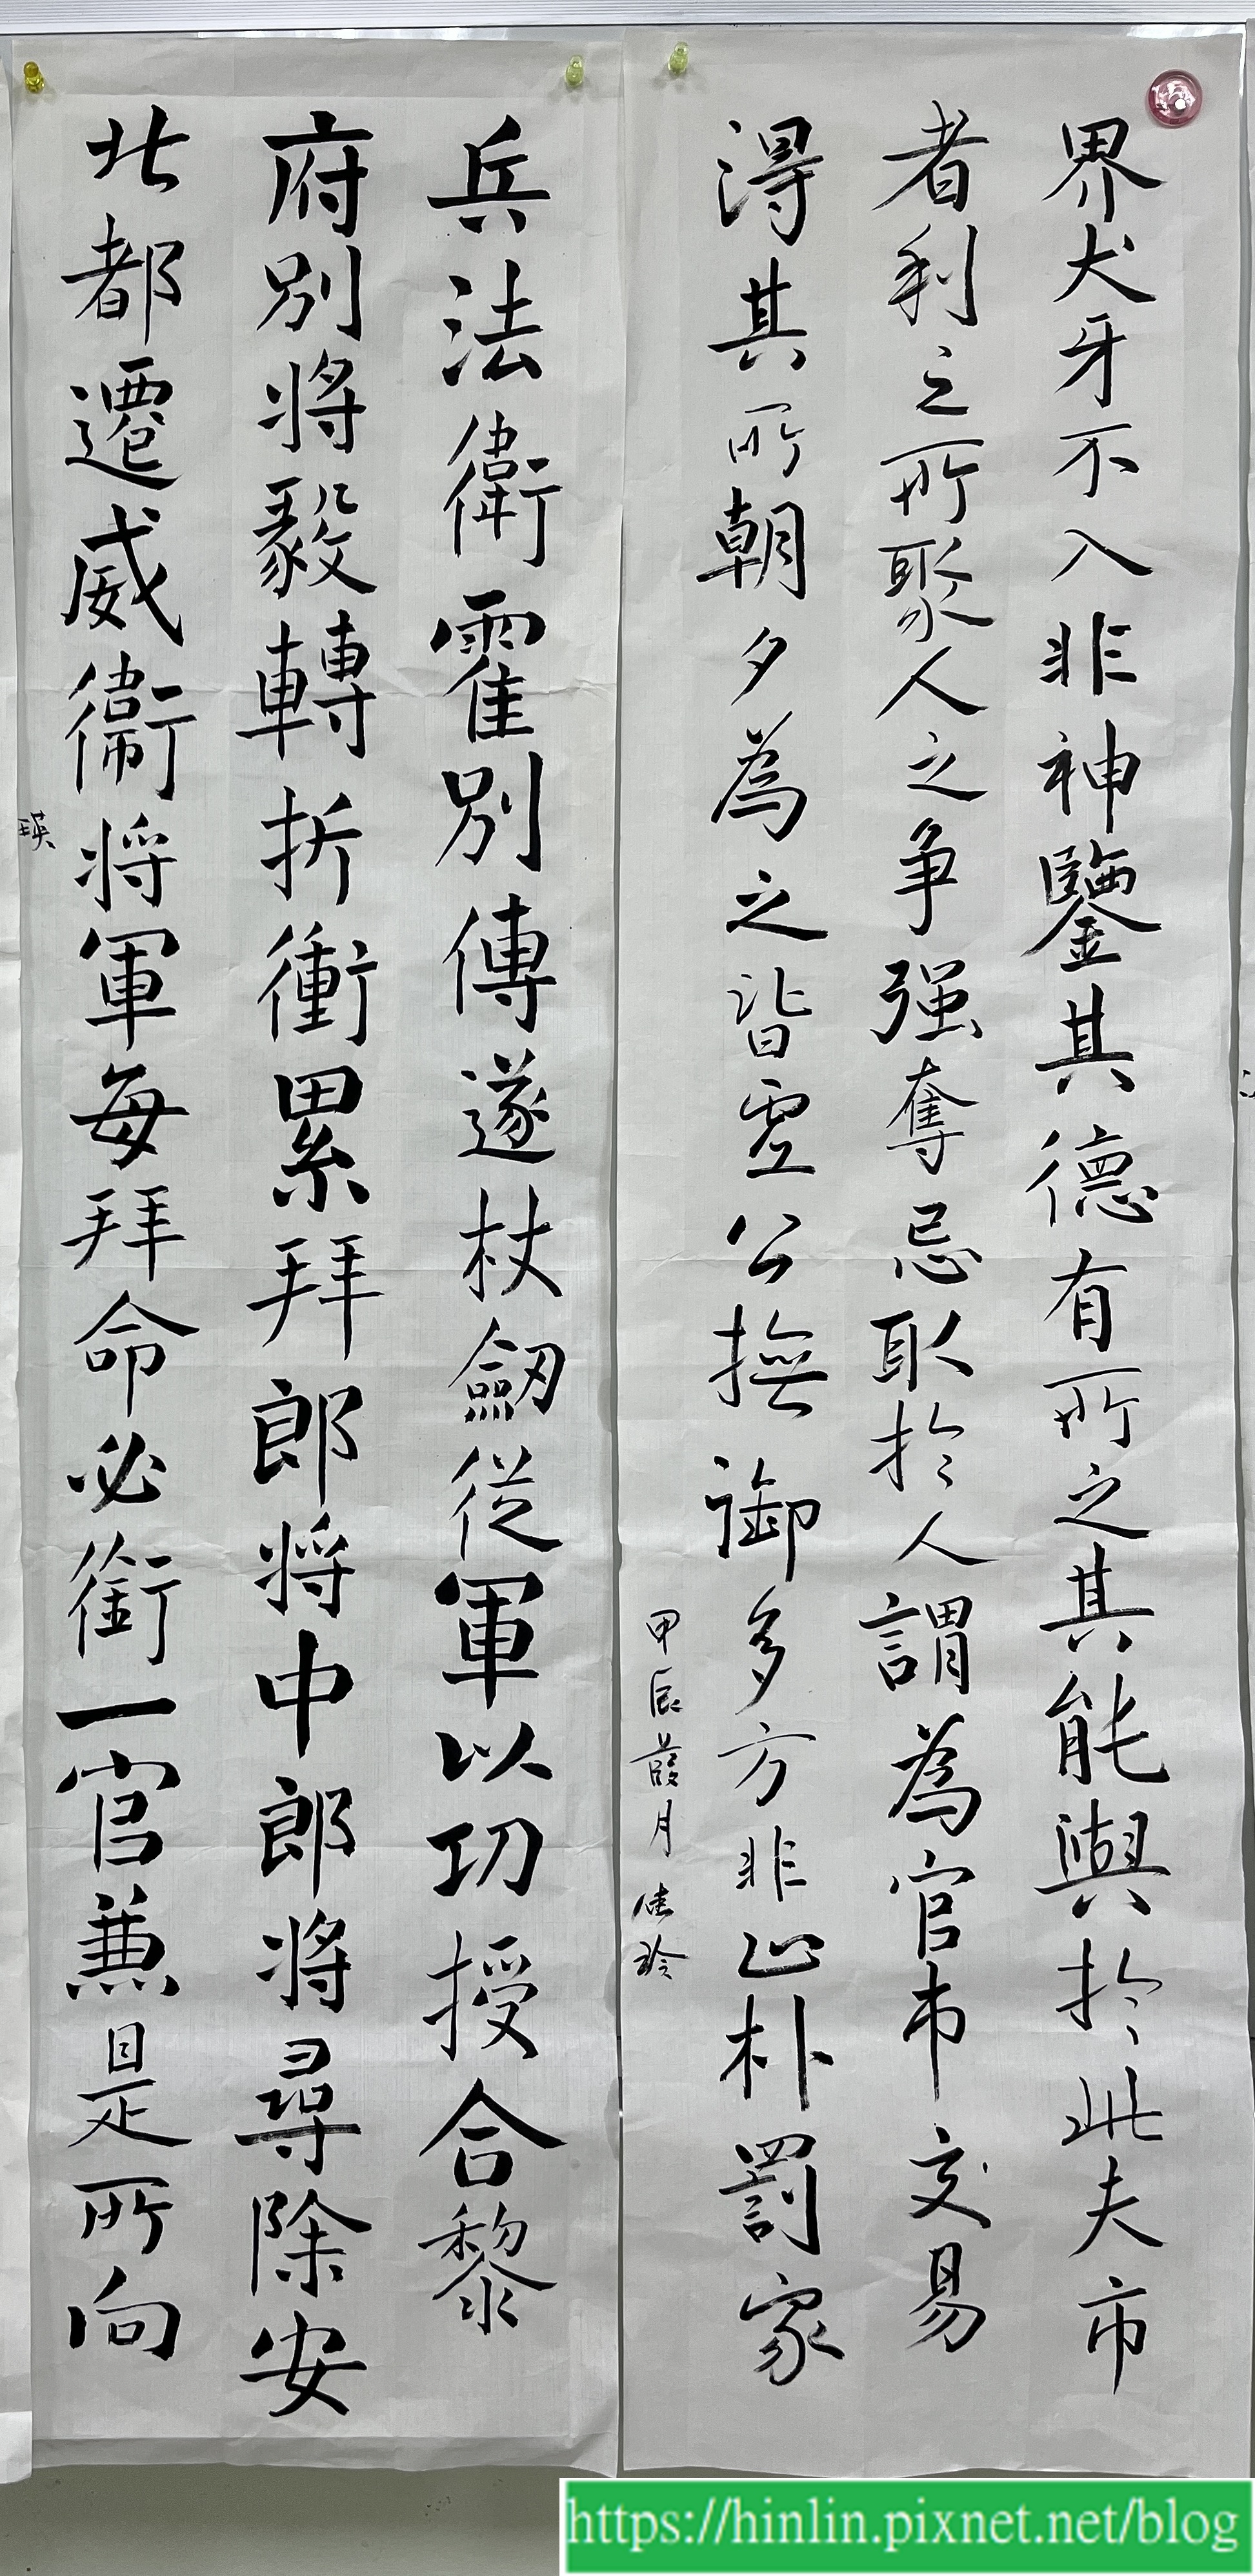 界犬牙不入非神鑒其德有所之其能與於此夫市
者利之所聚人之争强奪忌取於人謂為官市交易
淂其所朝夕為之皆空公撫御多方非止朴罰家
甲辰葭月佳玲
兵法衛霍別傳遂杖劒從軍以功授合黎
府別将毅轉折衝累拜郎将中郎将尋除安
北都遷威衞将軍每拜命必銜一官兼是所向
瑛
https://hinlin.pixnet.net/blog